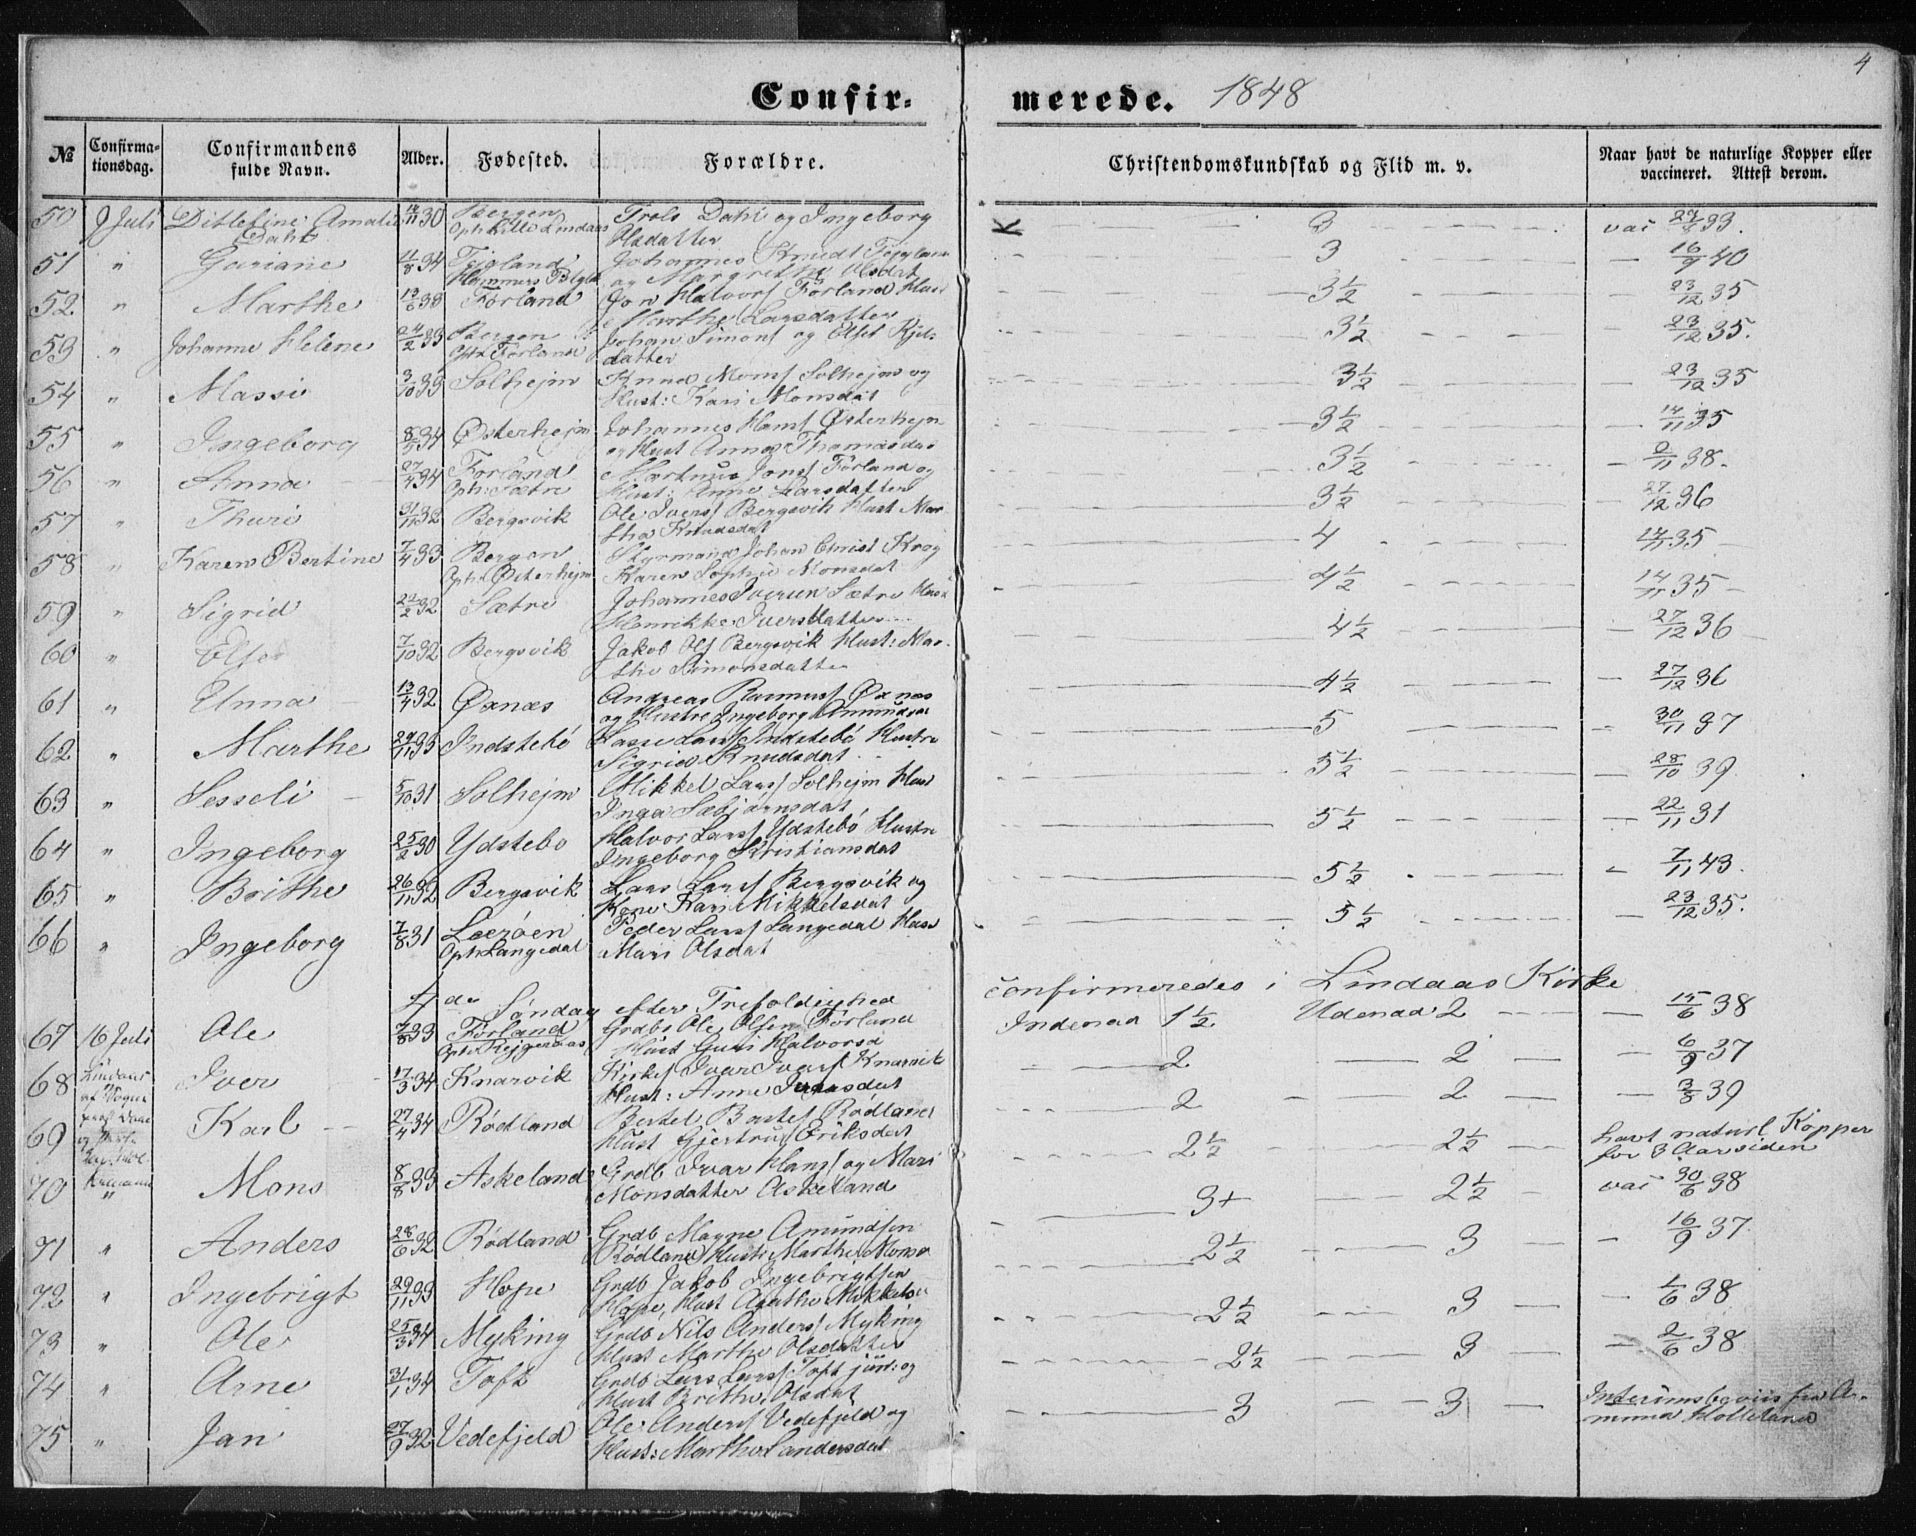 4
Confir- merede. 1848
№ Confirma-tionsdag. Confirmandens fulde Navn. Alder. Fødested. Forældre. Christendomskundskab og Flid m. v. Naar havt de naturlige Kopper eller vaccineret. Attest derom.
50 9 Juli Ditlefine Amalie 14/11 30 Bergen Trols Dahl og Ingeborg K 3 vac 27/6 33.
Dahl Opt: Lille Lindaas Olsdatter
51 " Guriane 11/8 34 Fejeland Johannes Knudt 3 — 16/9 40
Hammers Pælgld og Margrethe Olsdat
52 " Marthe 13/6 33 Førland Jon Halvors Førland Hust 3½ — 23/12 35
Marthe Larsdatter
53 " Johanne Helene 24/2 33 Bergen Johan Simons og Elset Kjel- 3½ — 23/12 35.
Opt: Førland datter
54 " Massi 3/10 33 Solhejm Knud Mons Solhejm og 3½ — 23/12 35
Hust: Kari Monsdat
55 " Ingeborg 8/5 34 Østerhejm Johannes Hans Østerhejm 3½ — 14/11 35
og Hust Anna Thomasda
56 " Anna 27/4 34 Førland Martnus Jons Førland og 3½ — 2/11 38.
Opt: Sætre Hust: Anne Larsdatter
57 " Thuri 31/11 32 Bergsvik Ole Ivers Bergsvik Hust Mar 3½ — 27/12 36
tha Knudsdat
58 " Karen Bertine 7/4 33 Bergen Styrmand Johan Christ Krog 4 14/11 35
Opt: Østerhejm Karen Sophie Monsdat
59 " Sigrid 22/2 32 Sætre Johannes Iversen Sætre Hust 4½ 14/11 35
Henrikke Iversdatter
60 " Else 7/10 32 Bergsvik Jakob Ols Bergsvik Hust: Mar- 4½ — 27/12 36
the Simonsdatter
61 " Unna 13/4 32 Øxnæs Andreas Rasmus Øxnæs 4½ — 27/12 36
og Hustre Ingeborg Amundsda
62 " Marthe 24/11 33 Indstebö Lasse Lars Indstebö Hustru 5 — 30/11 37
Sigrid Knudsdat
63 " Sesseli 5/10 31 Solhejm Mikkel Lars Solhejm Hust 5½ — 28/10 39
Inga Sæbjörnsdat
64 " Ingeborg 25/2 30 Ydstebo Halvor Lars Ydstebö Hustru 5½ — 22/11 31
Ingeborg Kristiansdat
65 " Brithe 26/11 32 Bergsvik Lars Lars Bergsvik og 5½ — 7/11 43.
Kone Kari Mikkelsdat
66 " Ingeborg 7/8 31 Leeröen Peder Lars Langedal Hust 5½ — 23/12 35.
Opt: Langedal Mari Olsdat
4de Søndag efter Trefoldighed confirmeredes i Lindaas Kirke
67 16 Juli Ole 7/8 33 Førland Grdb: Ole Olsen Førland Indenad 1½ Udenad 2 15/6 38
Opt: Kejgernæs Hust Guri Halvorsd
68 Lindaas Iver 17/3 34 Knarvik Kirkes Ivar Ivars Knarvik 2 2 — 6/9 37
af Sogne Hust: Anne Ivarsdat
69 Karl 27/4 34 Rödland Bertel Bertes Rödland 2 2 — 3/8 39
Hust Gjertrud Eriksdat
70 " Mons 8/8 33 Askeland Grdb Ivar Hans og Mari 2½ 2½ havt naturl Kopper
Monsdatter Askeland for 3 Aar siden
71 " Anders 28/6 32 Rödland Grdb Magne Amundsen 3+ 2½ vac 30/6 38
Rödland Hust: Marthe Monsd
72 " Ingebrigt 29/11 33 Hope Grdb Jakob Ingebrigtsen 2½ 3 — 16/9 37
Hope, Hust Agathe Mikkelsd
73 " Ole 25/3 34 Myking Grdb Nils Anders Myking 2½ 3 — 1/6 38
Hust Marthe Olsdatter
74 " Arne 31/1 34 Toft Grdb Lars Lars Toft jun: og 2½ 3 — 2/6 38
Hust Brithe Olsdat
75 " Jan 27/9 32 Vedefjeld Ole Anders Vedefjeld og 3 3 Interimsbeviis fra A-
Hust: Martha Sandersdat mund Helleland